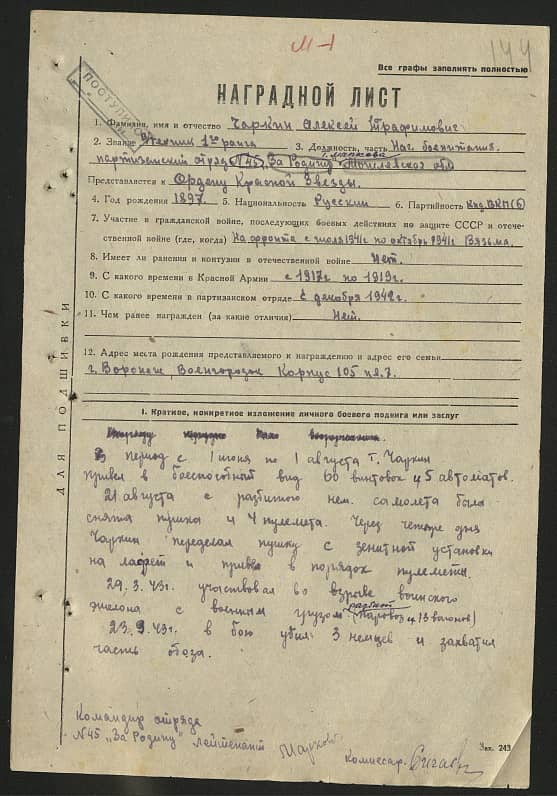 М-1
144
Все графы заполнять полностью
НАГРАДНОЙ ЛИСТ
1. Фамилия, имя и отчество Чаркин Алексей Трофимович
2. Звание техник 1го ранга 3. Должность, часть Нач. боепитания.
партизанский отряд N45 „За Родину" Могилевская обл
Представляется к Ордену Красной Звезды.
4. Год рождения 1897 5. Национальность Русский 6. Партийность Кнд. ВКП(б)
7. Участие в гражданской войне, последующих боевых действиях по защите СССР и отече-
ственной войне (где, когда) На фронте с июля 1941г. по октябрь 1941г Вязьма.
8. Имеет ли ранения и контузии в отечественной войне Нет.
9. С какого времени в Красной Армии с 1917г по 1919г.
10. С какого времени в партизанском отряде С декабря 1942г.
11. Чем ранее награжден (за какие отличия) Нет.
12. Адрес места рождения представляемого к награждению и адрес его семьи
г. Воронеж, Военгородок Корпус 105 кв. 7.
ДЛЯ ПОДШИВКИ
I. Краткое, конкретное изложение личного боевого подвига или заслуг
В период с 1 июня по 1 августа т. Чаркин
привел в боеспособный вид 60 винтовок и 5 автоматов.
21 августа с разбитого нем. самолета была
снята пушка и 4 пулемета. Через четыре дня
Чаркин переделал пушку с зенитной установки
на лафет и привел в порядок пулеметы.
29.3.43г. участвовал во взрыве воинского
эшелона с военным грузом (паровоз и 13 вагонов)
23.9.43г. в бою убил 3 немцев и захватил
часть обоза.
Командир отряда
N45 „За Родину" лейтенант
Комиссар
Зак. 243